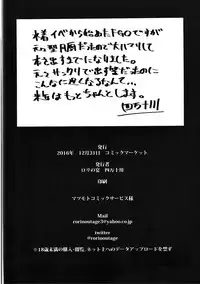 水着イベから始めたFGOですが
元々型月厨だったので大ハマりして
本を出すまでになりました。
元々サックリで出す予定だったのに
こんなに長くなるなんて…
次はもっとちゃんとします。
四万十川
発行
2016年 12月31日 コミックマーケット
発行者
ロリの宴 四万十川
印刷
マツモトコミックサービス様
Mail
rorinoutage3@yahoo.co.jp
Twitter
@rorinoutage
※18歳未満の購入・閲覧、ネット上へのデータアップロードを禁ず